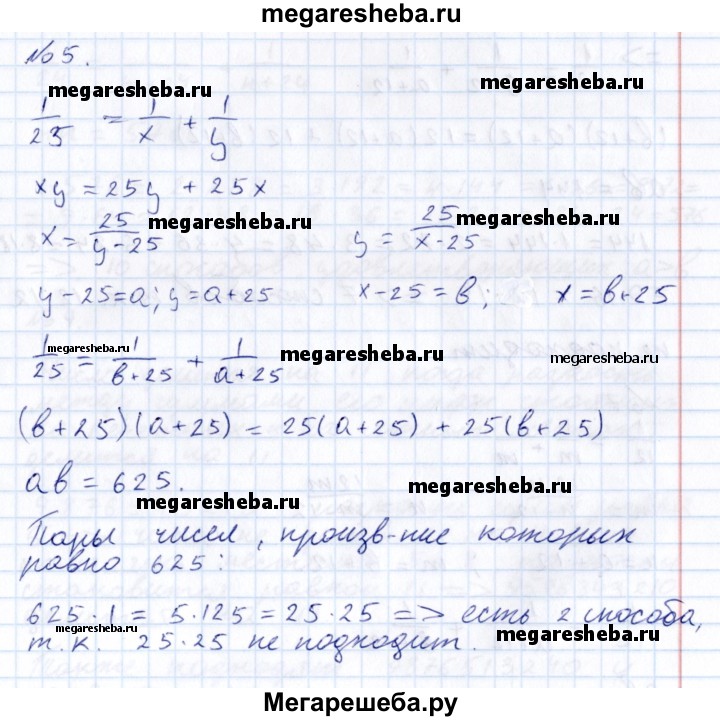 megaresheba.ru
№5.
megaresheba.ru
megaresheba.ru
1/25 = 1/x + 1/y
xy = 25y + 25x
x = 25/(y-25) megaresheba.ru y = 25/(x-25) megaresheba.ru
y-25=a; y=a+25 x-25=в; x=в+25
1/25 = 1/(в+25) + 1/(a+25)
megaresheba.ru megaresheba.ru megaresheba.ru
(в+25)(a+25) = 25(a+25) + 25(в+25)
aв = 625.
megaresheba.ru megaresheba.ru
Пары чисел, произв-ние которых
равно 625:
625·1 = 5·125 = 25·25 => есть 2 способа,
т.к. 25·25 не подходит.
megaresheba.ru megaresheba.ru
Мегарешеба.ру